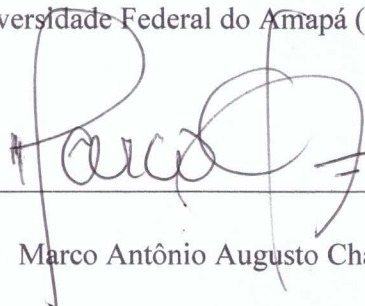 versidade Federal do Amapá (
Marco Antônio Augusto Cha